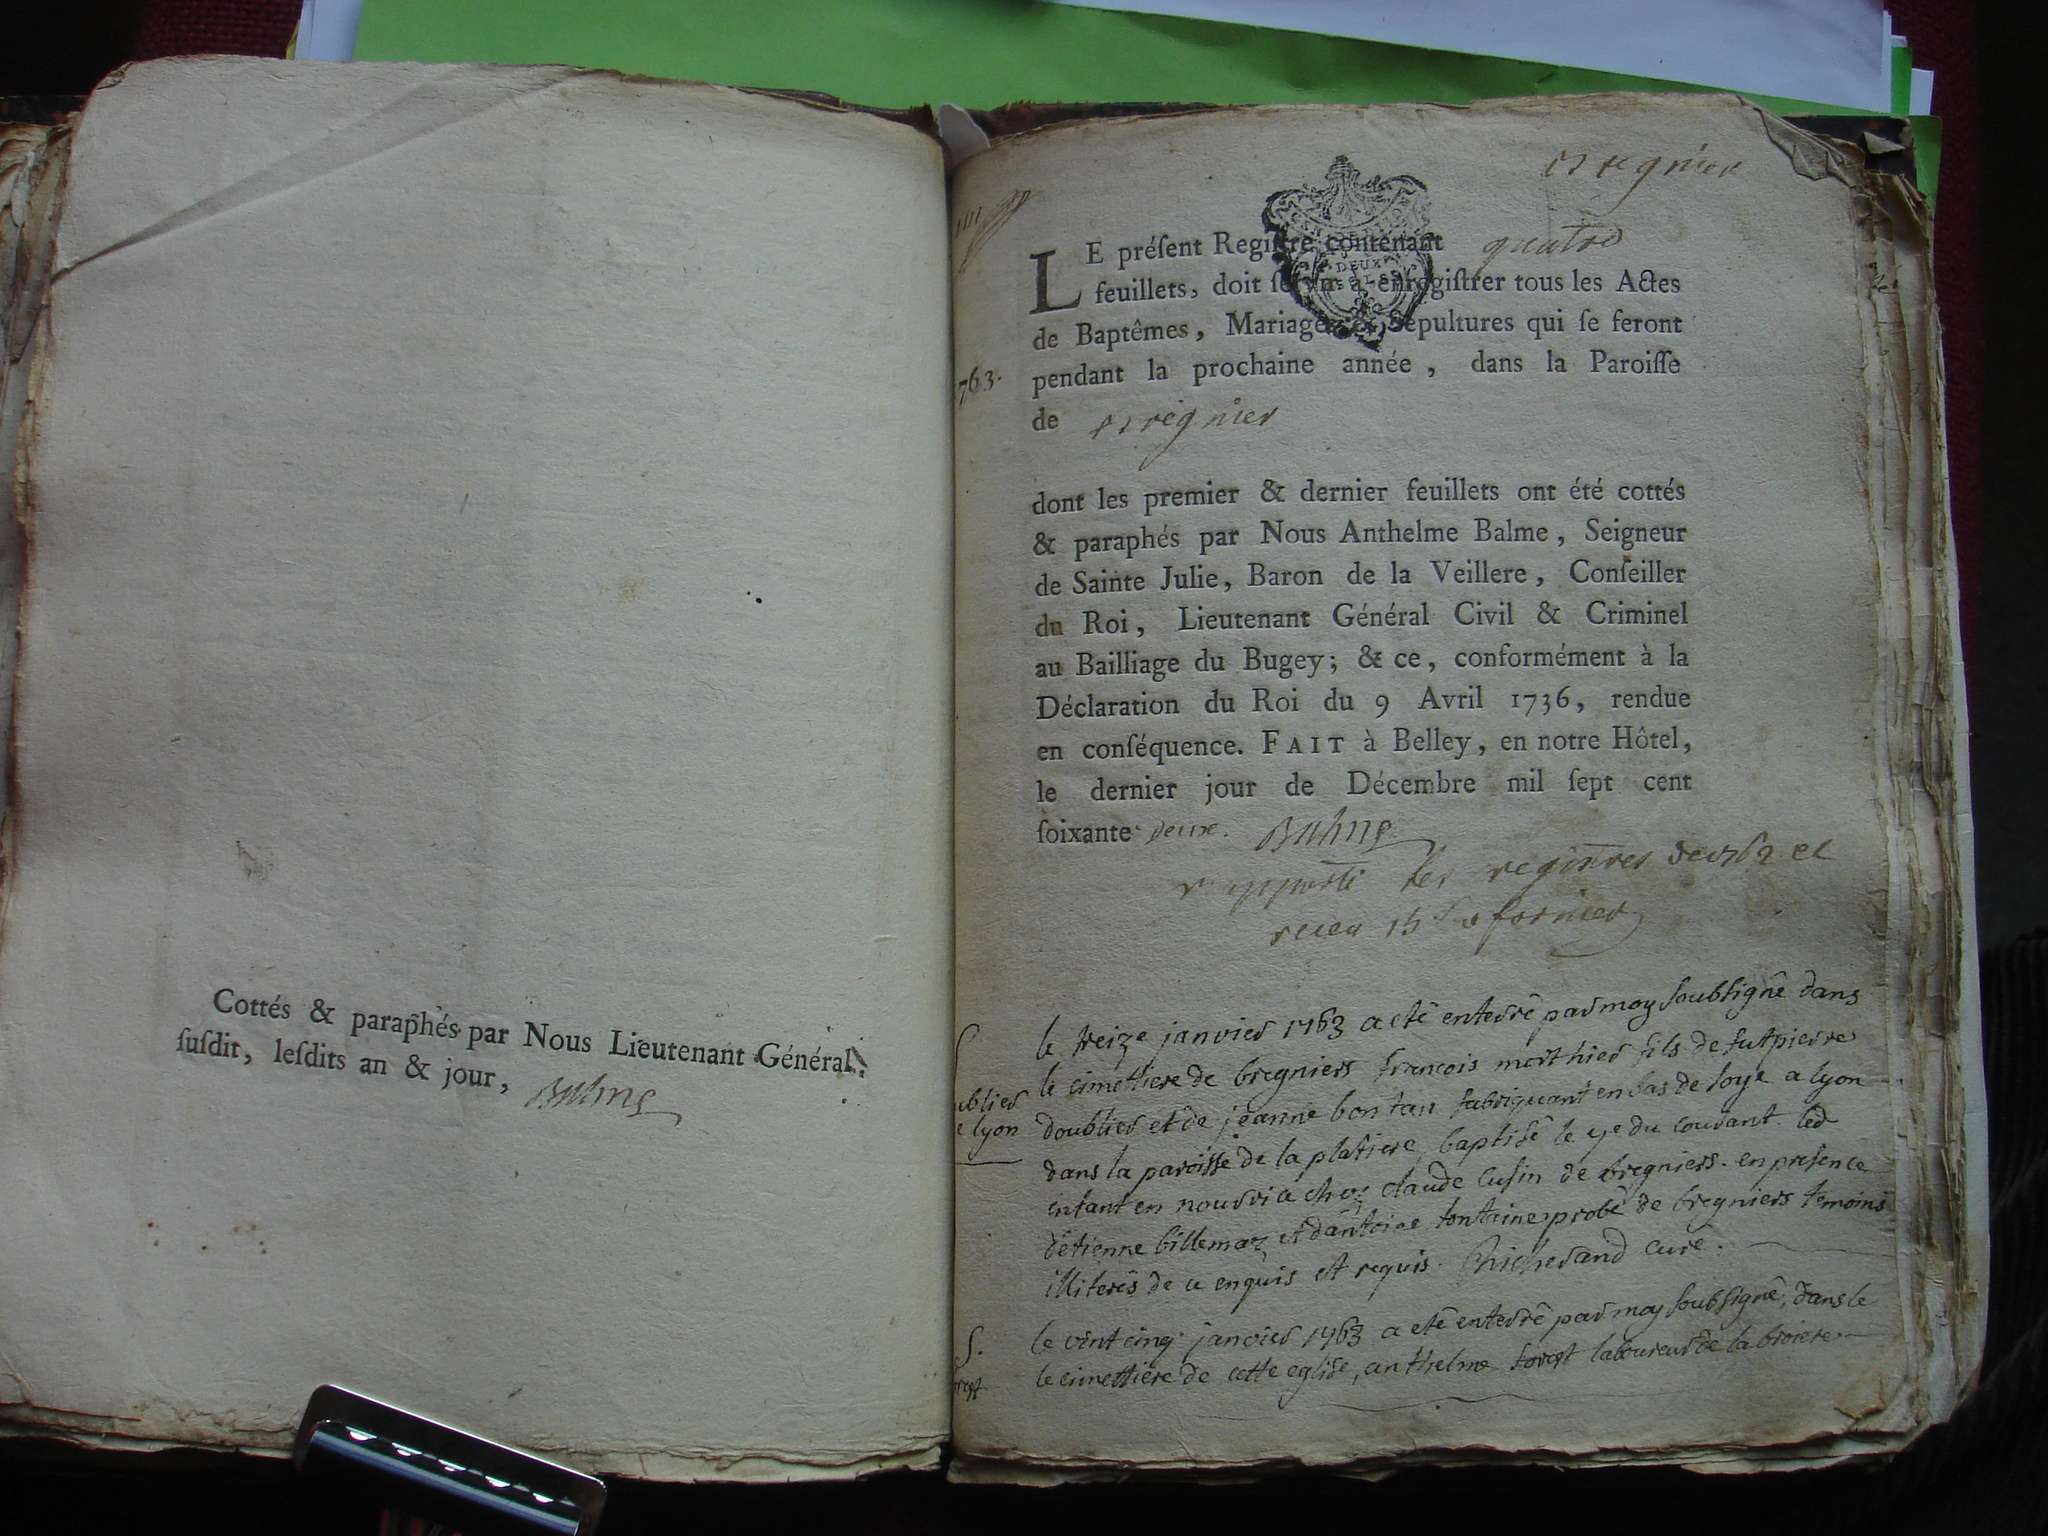 Cottés & paraphés par Nous Lieutenant Général
susdit, lesdits an & jour, Balme
quatre
LE préſent Regiſtre contenant
feuillets, doit ſervir à enregiſtrer tous les Actes
de Baptêmes, Mariages & Sépultures qui ſe feront
pendant la prochaine année, dans la Paroiſſe
1763.
de
dont les premier & dernier feuillets ont été cottés
& paraphés par Nous Anthelme Balme, Seigneur
de Sainte Julie, Baron de la Veillere, Conſeiller
du Roi, Lieutenant Général Civil & Criminel
au Bailliage du Bugey; & ce, conformément à la
Déclaration du Roi du 9 Avril 1736, rendue
en conſéquence. FAIT à Belley, en notre Hôtel,
le dernier jour de Décembre mil ſept cent
ſoixante deux. Balme
les registres de 1762 et
le treize janvier 1763 a eté enterré par moy soubsigné dans
le cimettiere de bregniers francois morthier fils de fut pierre
doublier et de jeanne bontan fabriquant en bas de soye a lyon
dans la paroisse de la platiere, baptisé le 4e du courant. led
enfant en nourrice chez claude cusin de bregniers. en presence
d'etienne billemaz et d'antoine fontaine probé de bregniers temoins
illiterés de ce enquis et requis. Richerand curé.
S.
le vint cinq janvier 1763 a eté enterré par moy soubsigné, dans le
le cimettiere de cette eglise, anthelme forest laboureur de la broiere